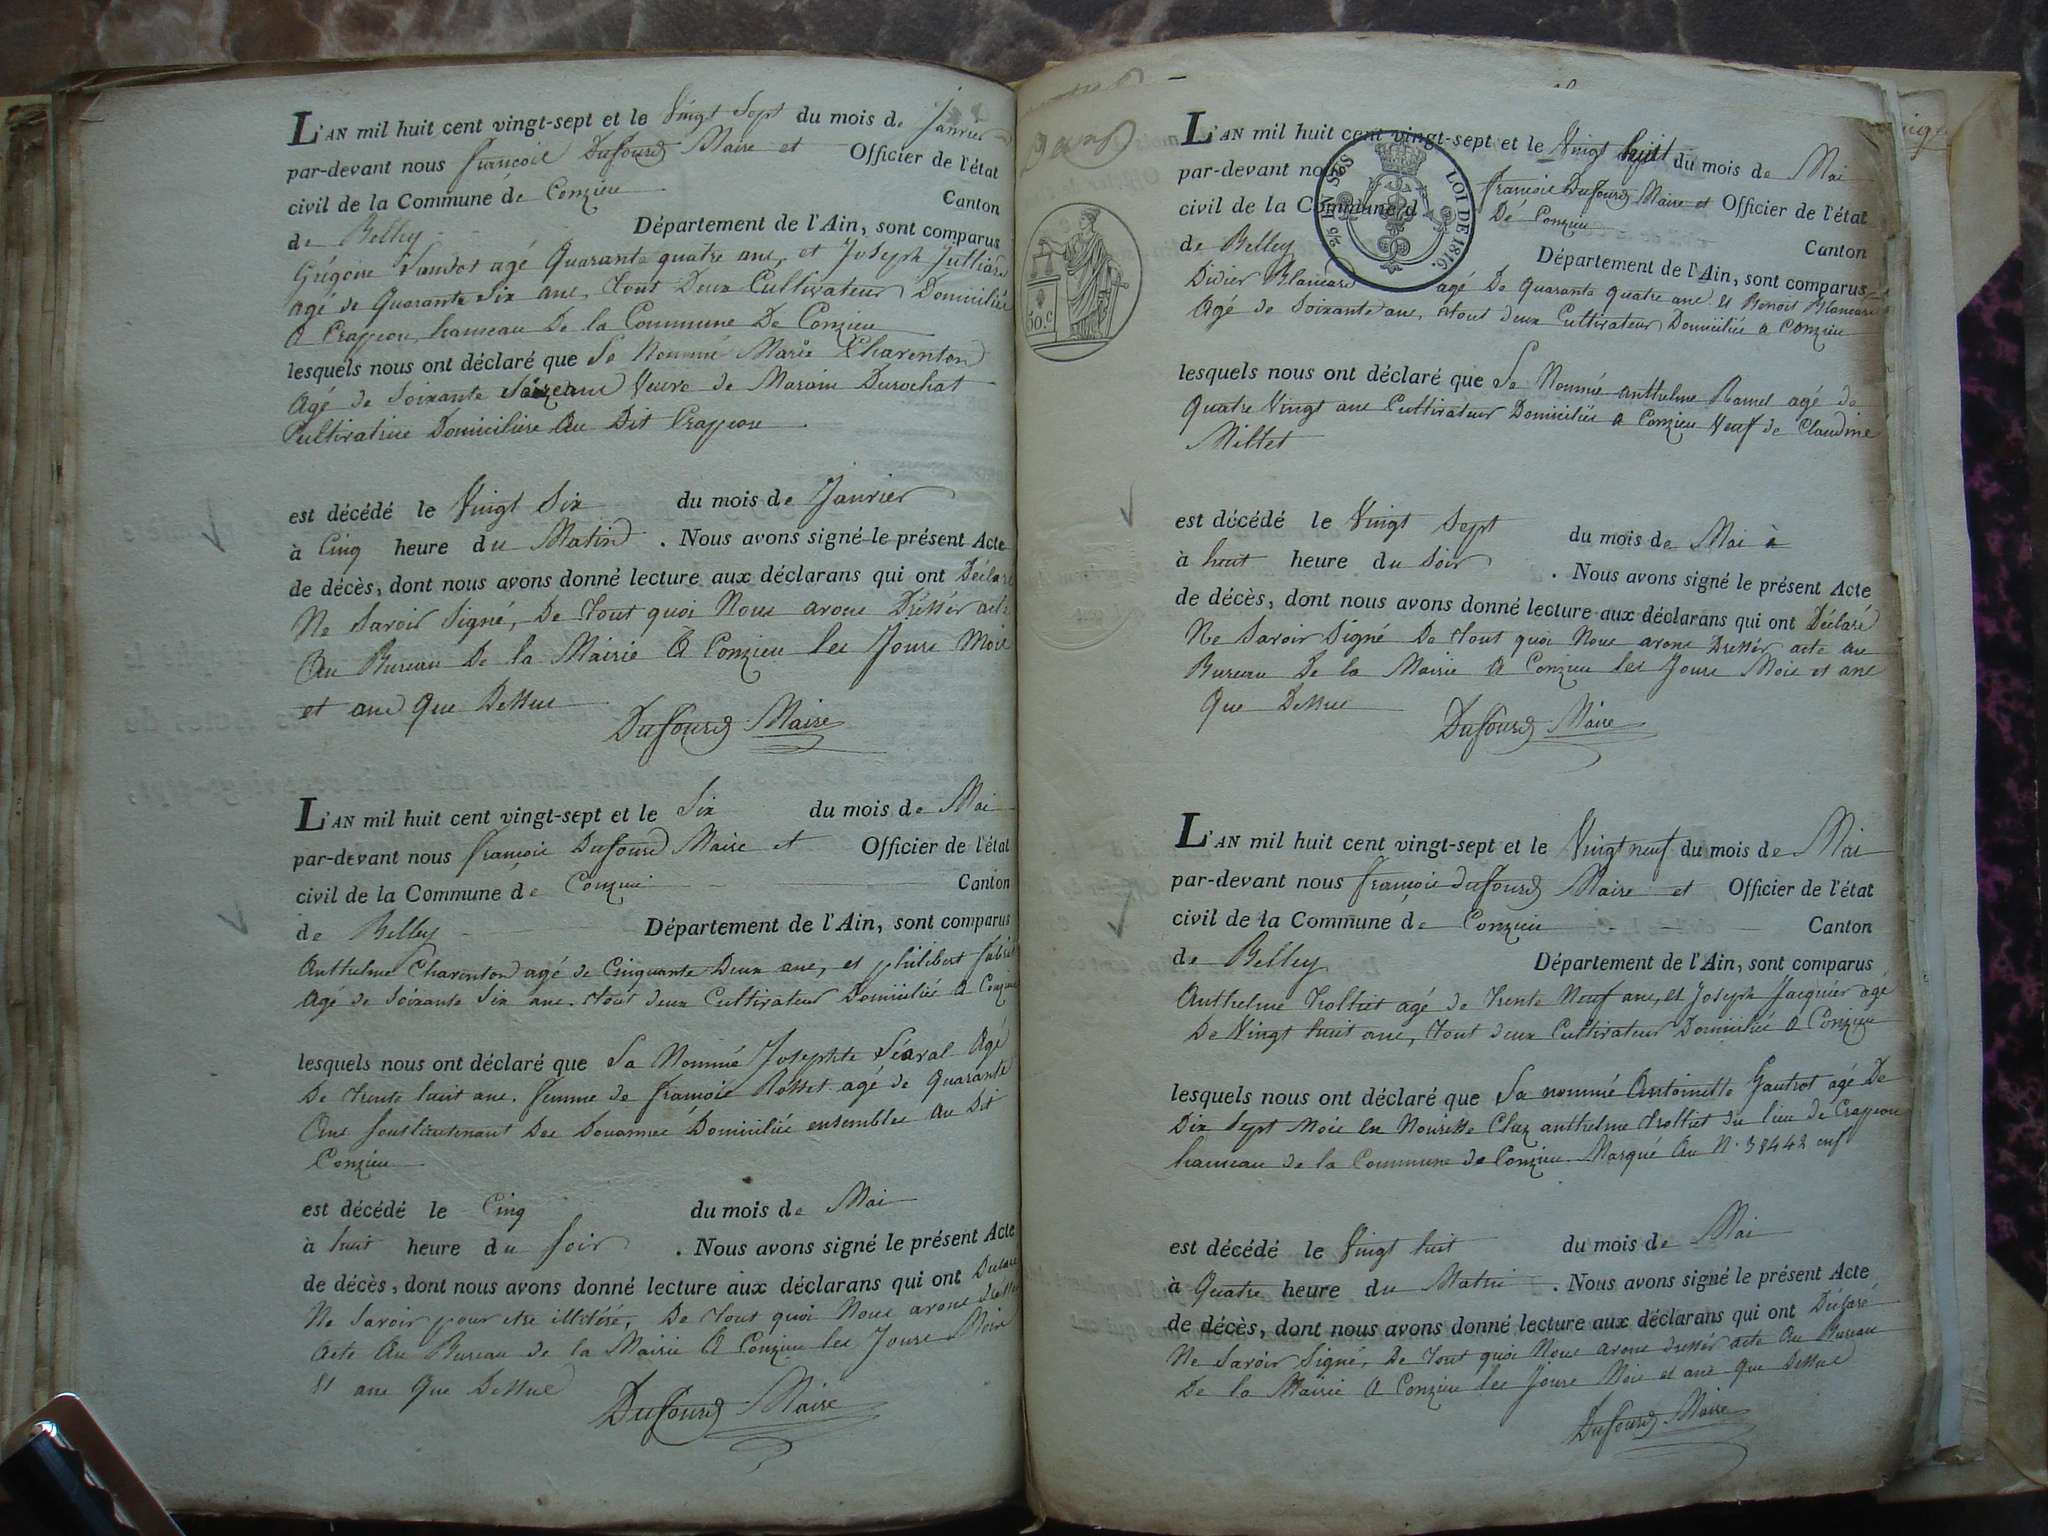 L'AN mil huit cent vingt-sept et le Vingt Sept du mois de Janvier
par-devant nous françois Dufourd Maire et Officier de l'état
civil de la Commune de Conzieu Canton
de Belley Département de l'Ain, sont comparus
Grégoire agé Quarante quatre ans, et Joseph Julliard
agé de Quarante Six ans, tout Deux Cultivateur Domicilié
a Crappou hameau De la Commune De Conzieu
lesquels nous ont déclaré que Se Nommé Marie Charenton
agé de Soixante Seize ans Veuve de Durochat
Cultivatrice Domicilière Au Dit Crappou
est décédé le Vingt Six du mois de Janvier
à Cinq heure du Matin . Nous avons signé le présent Acte
de décès, dont nous avons donné lecture aux déclarans qui ont Déclaré
Ne Savoir Signé, De tout quoi Nous avons Dressér acte
Au Bureau De la Mairie A Conzieu les Jours Mois
et ans Que Dessus
Dufourd Maire
L'AN mil huit cent vingt-sept et le Six du mois de Mai
par-devant nous françois Dufourd Maire et Officier de l'état
civil de la Commune de Conzieu Canton
de Belley Département de l'Ain, sont comparus
Anthelme Charenton agé de Cinquante Deux ans, et philibert
agé de Soixante Six ans. tout deux Cultivateur Domicilié a Conzieu
lesquels nous ont déclaré que La Nommé Josephte agé
De trente huit ans. femme de françois Rosset agé de Quarante
Ans Souslieutenant Des Douannes Domicilié ensembles Au Dit
Conzieu
est décédé le Cinq du mois de Mai
à huit heure du Soir . Nous avons signé le présent Acte
de décès, dont nous avons donné lecture aux déclarans qui ont Déclaré
Ne Savoir pour etre illitéré, De tout quoi Nous avons
acte Au Bureau de la Mairie A Conzieu les Jours Mois
et ans Que Dessus
Dufourd Maire
50.c
L'AN mil huit cent vingt-sept et le Vingt huit du mois de Mai
par-devant nous françois Dufourd Maire et Officier de l'état
civil de la Commune d De Conzieu Canton
LOI DE 1816.
de Belley Département de l'Ain, sont comparus
Didier Blancard agé De Quarante quatre ans et Benoit Blancard
Agé de Soixante ans, tout deux Cultivateur Domicilié a Conzieu
lesquels nous ont déclaré que Se Nommé anthelme Ramel agé de
Quatre Vingt ans Cultivateur Domicilié a Conzieu Veuf de Claudine
Millet
est décédé le Vingt Sept du mois de Mai à
à huit heure du Soir . Nous avons signé le présent Acte
de décès, dont nous avons donné lecture aux déclarans qui ont Déclaré
Ne Savoir Signé De tout quoi Nous avons Dressér acte au
Bureau De la Mairie A Conzieu les Jours Mois et ans
Que Dessus
Dufourd Maire
L'AN mil huit cent vingt-sept et le Vingt neuf du mois de Mai
par-devant nous françois dufourd Maire et Officier de l'état
civil de la Commune de Conzieu Canton
de Belley Département de l'Ain, sont comparus
Anthelme Trolliet agé de trente Neuf ans, et Joseph Jacquier agé
De Vingt huit ans, tout deux Cultivateur Domicilié a Conzieu
lesquels nous ont déclaré que La nommé Antoinette Gautrot agé De
Dix Sept Mois en Nourisse Chez anthelme trolliet du lieu de Crappou
hameau de la Commune de Conzieu. Marqué Au N. 38442
est décédé le Vingt huit du mois de Mai
à Quatre heure du Matin . Nous avons signé le présent Acte
de décès, dont nous avons donné lecture aux déclarans qui ont Déclaré
Ne Savoir Signé, De tout quoi Nous avons dressér acte Au Bureau
De la Mairie A Conzieu les Jours Mois et ans Que Dessus
Dufourd Maire